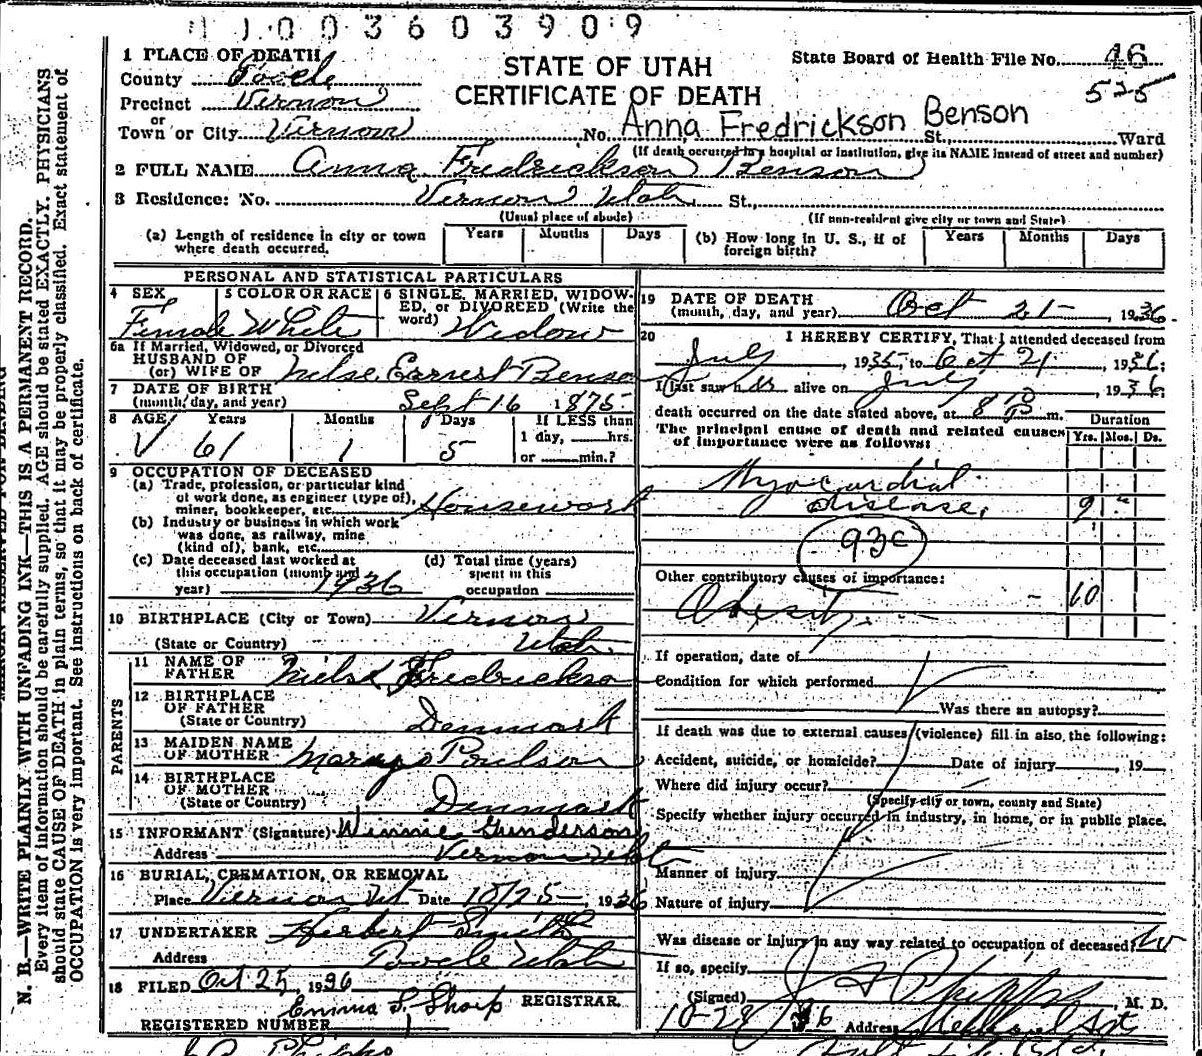 1 1 0 0 3 6 0 3 9 0 9
1 PLACE OF DEATH
County Tooele
Precinct Vernon
or
Town or City Vernon
STATE OF UTAH
CERTIFICATE OF DEATH
State Board of Health File No. 46
525
No. Anna Fredrickson Benson St., Ward
(If death occurred in a hospital or institution, give its NAME instead of street and number)
2 FULL NAME Anna Fredrickson Benson
3 Residence: No. Vernon Utah St.,
(Usual place of abode) (If non-resident give city or town and State)
(a) Length of residence in city or town where death occurred. Years Months Days
(b) How long in U. S., if of foreign birth? Years Months Days
PERSONAL AND STATISTICAL PARTICULARS
4 SEX Female
5 COLOR OR RACE White
6 SINGLE, MARRIED, WIDOWED, or DIVORCED (Write the word) Widow
6a If Married, Widowed, or Divorced
HUSBAND OF
(or) WIFE OF Nilse Earnest Benson
7 DATE OF BIRTH
(month, day, and year) Sept 16 1875
8 AGE Years 61 Months 1 Days 5 If LESS than
1 day, hrs.
or min.?
9 OCCUPATION OF DECEASED
(a) Trade, profession, or particular kind
of work done, as engineer (type of),
miner, bookkeeper, etc. Housework
(b) Industry or business in which work
was done, as railway, mine
(kind of), bank, etc.
(c) Date deceased last worked at
this occupation (month and
year) 1936
(d) Total time (years)
spent in this
occupation
10 BIRTHPLACE (City or Town) Vernon
(State or Country) Utah
PARENTS
11 NAME OF
FATHER Niels Fredrickso
12 BIRTHPLACE
OF FATHER
(State or Country) Denmark
13 MAIDEN NAME
OF MOTHER Poulson
14 BIRTHPLACE
OF MOTHER
(State or Country) Denmark
15 INFORMANT (Signature) Winnie Gunderson
Address Vernon Utah
16 BURIAL, CREMATION, OR REMOVAL
Place Vernon Ut Date 10/25, 1936
17 UNDERTAKER Herbert Smith
Address Tooele Utah
18 FILED Oct 25, 1936
Emma S. Sharp REGISTRAR.
REGISTERED NUMBER 1
19 DATE OF DEATH
(month, day, and year) Oct 21, 1936
20 I HEREBY CERTIFY, That I attended deceased from
July, 1935, to Oct 21, 1936;
I last saw her alive on July, 1936;
death occurred on the date stated above, at 8 m.
The principal cause of death and related causes
of importance were as follows:
Duration
Yrs. Mos. Ds.
Myocardial
disease, 9
93c
Other contributory causes of importance:
Obesity. 10
If operation, date of
Condition for which performed
Was there an autopsy?
If death was due to external causes (violence) fill in also, the following:
Accident, suicide, or homicide? Date of injury, 19
Where did injury occur?
(Specify city or town, county and State)
Specify whether injury occurred in industry, in home, or in public place.
Manner of injury
Nature of injury
Was disease or injury in any way related to occupation of deceased? no
If so, specify
(Signed) J A Phipps, M. D.
10-28 / 36 Address
N. B.—WRITE PLAINLY, WITH UNFADING INK—THIS IS A PERMANENT RECORD.
Every item of information should be carefully supplied. AGE should be stated EXACTLY. PHYSICIANS
should state CAUSE OF DEATH in plain terms, so that it may be properly classified. Exact statement of
OCCUPATION is very important. See instructions on back of certificate.